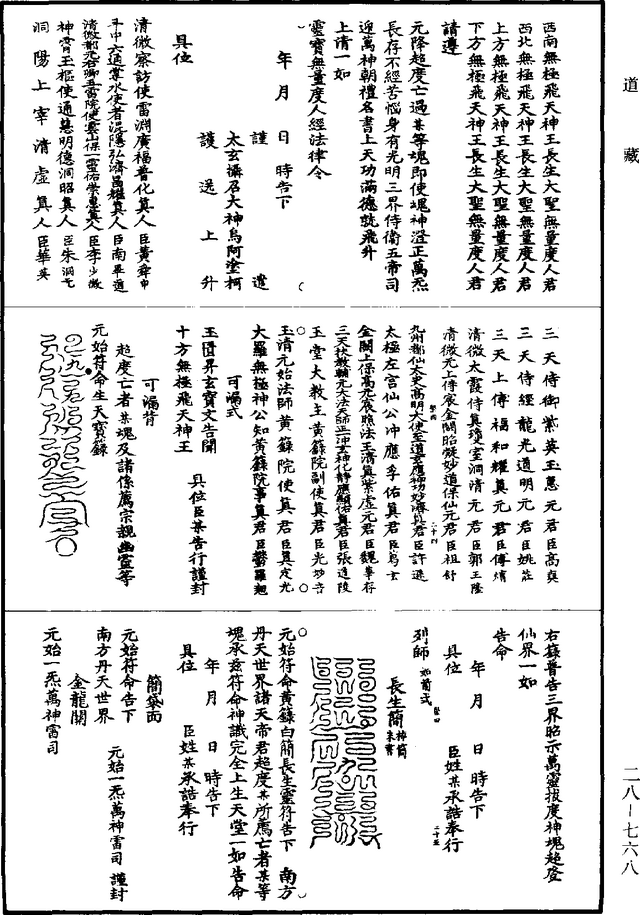 道藏
西南無極飛天神王長生大聖無量度人君
西北無極飛天神王長生大聖無量度人君
上方無極飛天神王長生大聖無量度人君
下方無極飛天神王長生大聖無量度人君
請遵
元降超度亡過某等魂即使魂神澄正萬炁
長存不經苦惱身有光明三界侍衛五帝司
迎萬神朝禮名書上天功滿德就飛升
上清一如
靈寶無量度人經法律令
年月日時告下
謹遣
太玄攝召大神烏阿塗柯
護送上升
具位
清微察訪使雷淵廣福普化真人臣黄舜申
斗中六通掌水使者混隱弘濟眞人臣南畢道
清微都元右卿五雷院使雲山保一靈佑崇惠真人臣李少微
神霄玉樞使通慧明德洞昭真人臣朱洞元
洞陽上宰清虛真人臣華英
三天侍御紫英玉惠元君臣高奭
三天侍經龍光道明元君臣姚莊
三天上傅福和耀真元君臣傅㷫
清微太霞侍真瓊室洞清元君臣郭玉隆
清微元上侍宸金闕昭凝妙道保仙元君臣祖舒
九州都仙太史高明大使至道玄應神功妙濟真君臣許遜
太極左宮仙公冲應孚佑真君臣葛玄
金闕上保高元宸照法王清真紫虛元君臣魏華存
三天扶教輔元大法天師正一冲玄神化靜應顯佑真君臣張道陵
玉堂大教主黄籙院副使真君臣光妙音
玉清元始法師黄籙院使真君臣真定光
大羅無極神公知黄籙院事真君臣鬱羅翹
可漏式
玉匱昇玄寶文告聞
具位臣某告行謹封
十方無極飛天神王
可漏背
超度亡者某魂及諸係薦宗親幽靈等
元始符命生天寶籙
右籙普告三界昭示萬靈拔度神魂超登
仙界一如
告命
年月日時告下
具位臣姓某承誥奉行
列師如前式
長生簡棒簡朱書
元始符命黄籙白簡長生靈符告下南方
丹天世界諸天帝君超度某所薦亡者某等
魂承兹符命神識完全上生天堂一如告命
年月日時告下
具位臣姓某承誥奉行
簡袋面
元始符命告下元始一炁萬神雷司謹封
南方丹天世界
金龍關
元始一炁萬神雷司
二八—七六八